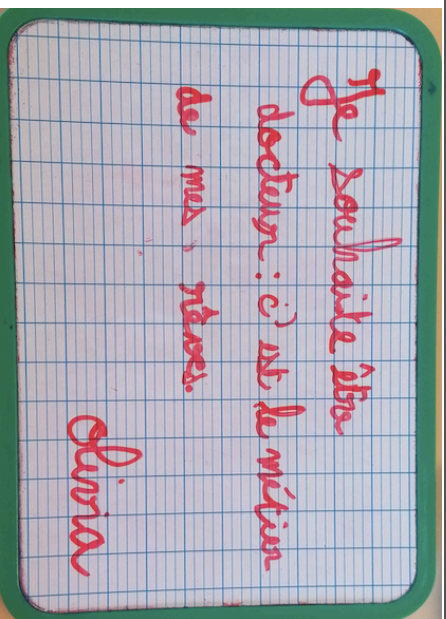 Je souhaite être
docteur : c'est le métier
de mes rêves.
Olivia